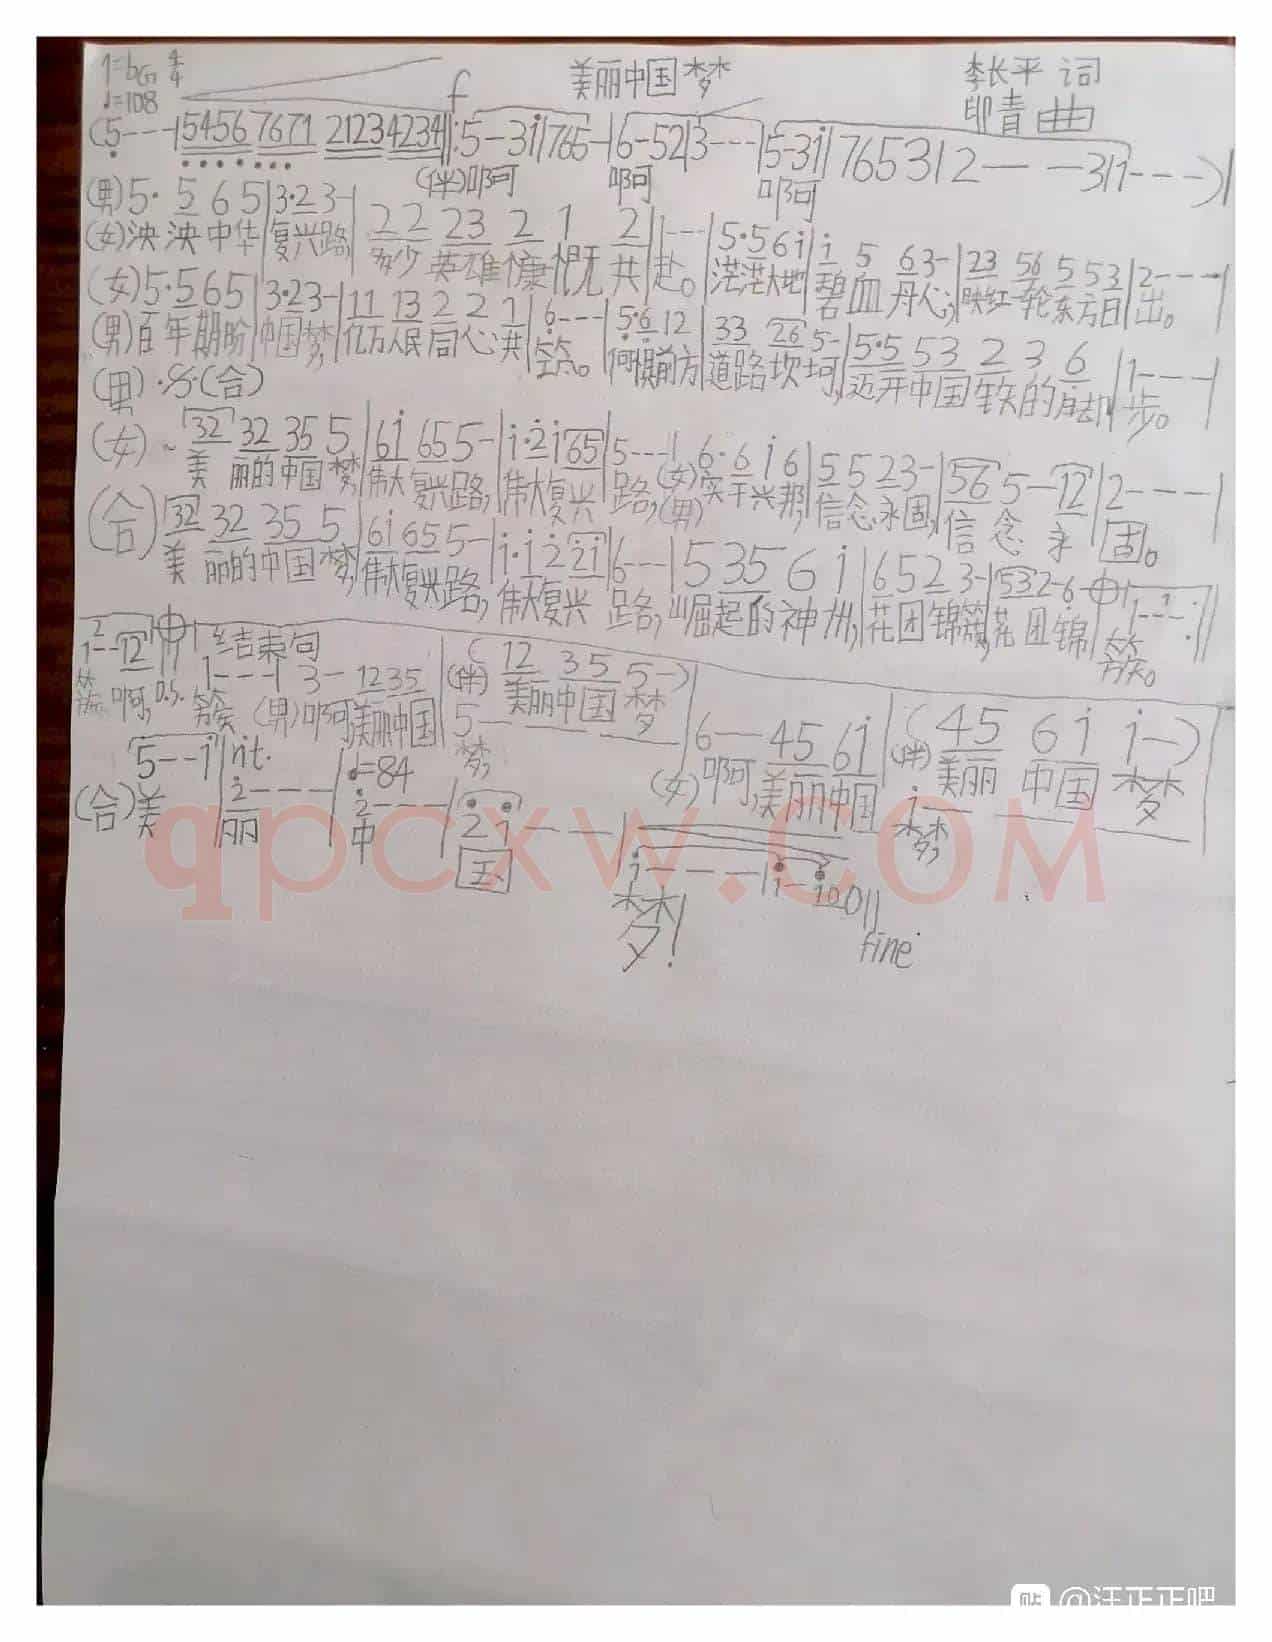 1=bG 4/4
♩=108
f
美丽中国梦
李长平 词
印青 曲
(5---|5456 7671 2123 4234‖:5-3i|765-|6-52|3---|5-3i|7653|2---3|1---)|
(伴)啊 啊 啊
(男)5· 5 6 5|3·2 3-|2 2 23 2 1 2|1---|5·5 6 i|i 5 6 3-|23 56 5 53|2---|
(女)泱泱中华|复兴路,|多少英雄慷慨共|赴。|茫茫大地|碧血丹心;|映红一轮东方日|出。
(女)5·5 6 5|3·2 3-|11 13 2 2 1|6---|5·6 12|33 26 5-|5·5 53 2 3 6|1---|
(男)百年期盼|中国梦,|亿万人民同心共|筑。|何惧前方|道路坎坷,|迈开中国铁的脚|步。
(男)·S·(合)
(女) ~ 32 32 35 5|6i 65 5-|i·2 i 65|5---|(女)6·6 i 6|5 5 2 3-|56 5-12|2---|
美丽的中国梦,|伟大复兴路,|伟大复兴|路,(男)实干兴邦,|信念永固,|信念永|固。
(合)32 32 35 5|6i 65 5-|i·i 2 2i|6---|5 35 6 i|6 5 2 3-|532-6|1---:‖
美丽的中国梦,|伟大复兴路,|伟大复兴|路,|崛起的神州,|花团锦簇,|花团锦|簇。
2
1--12|结束句
1---|3-1235|(伴)(12 35 5-)
簇 啊, D.S. 簇 (男)啊 美丽中国|美丽中国梦
5-
梦,
6--45 6i|(伴)(45 6i i-)
(女)啊,美丽中国|美丽中国梦
i-
梦,
5--i|rit.
2---|♩=84
2---|2 i---|i---|i-i00‖
(合)美|丽|中|国|梦!
fine
qpcxw.COM
贴 @汪正正吧